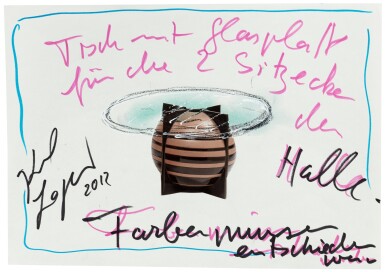 Tisch mit Glasplatt
für die 2 Sitzecken
der
Halle.
Karl
2012
Farben müssen
entschieden
werden